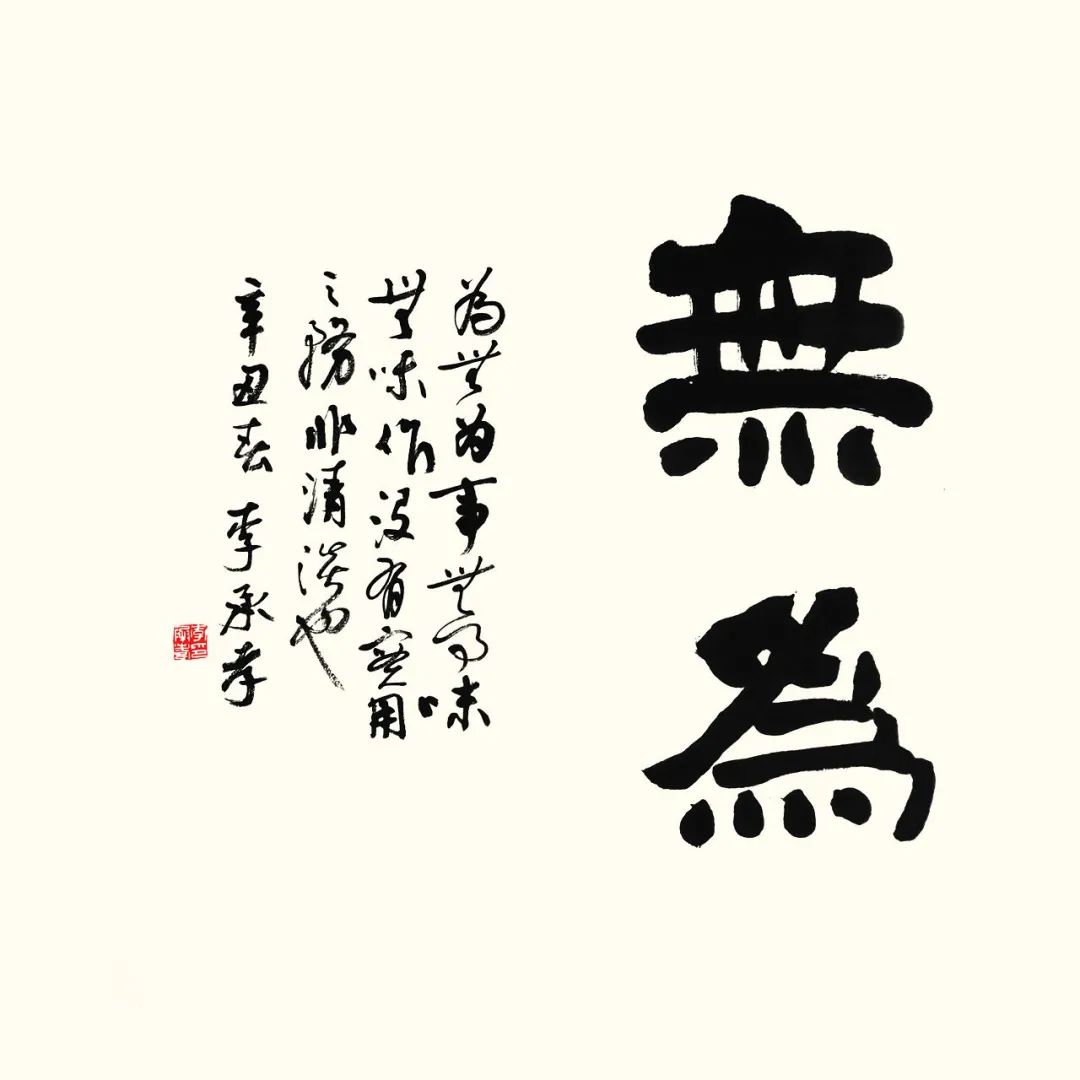 無為
為無為事無事味
無味作沒有實用
之務非清淡也
辛丑春 李承孝